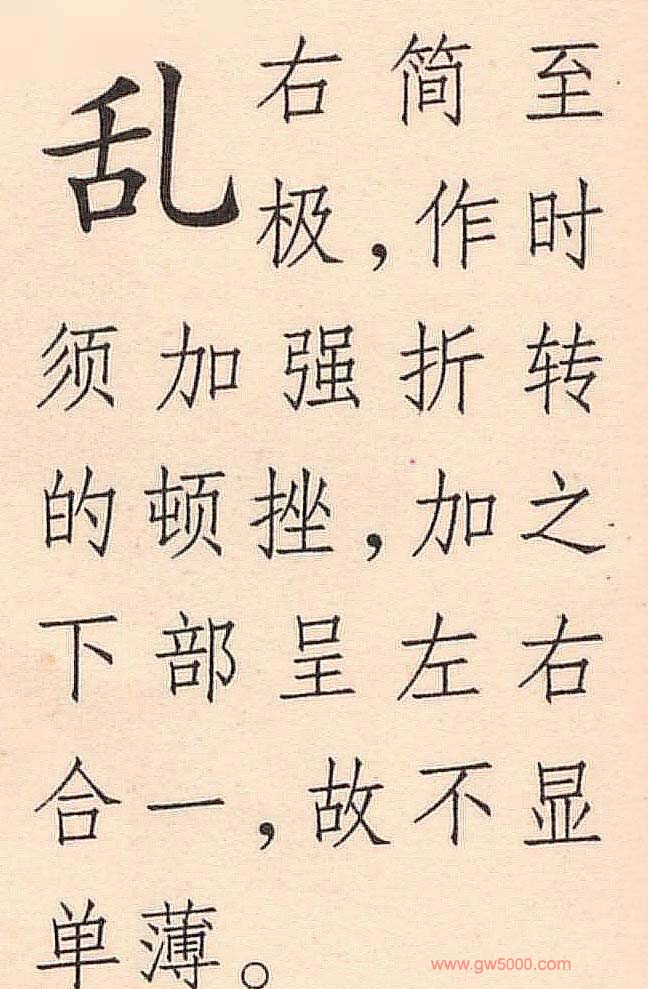 乱
右简至
极，作时
须加强折转
的顿挫，加之
下部呈左右
合一，故不显
单薄。
www.gw5000.com